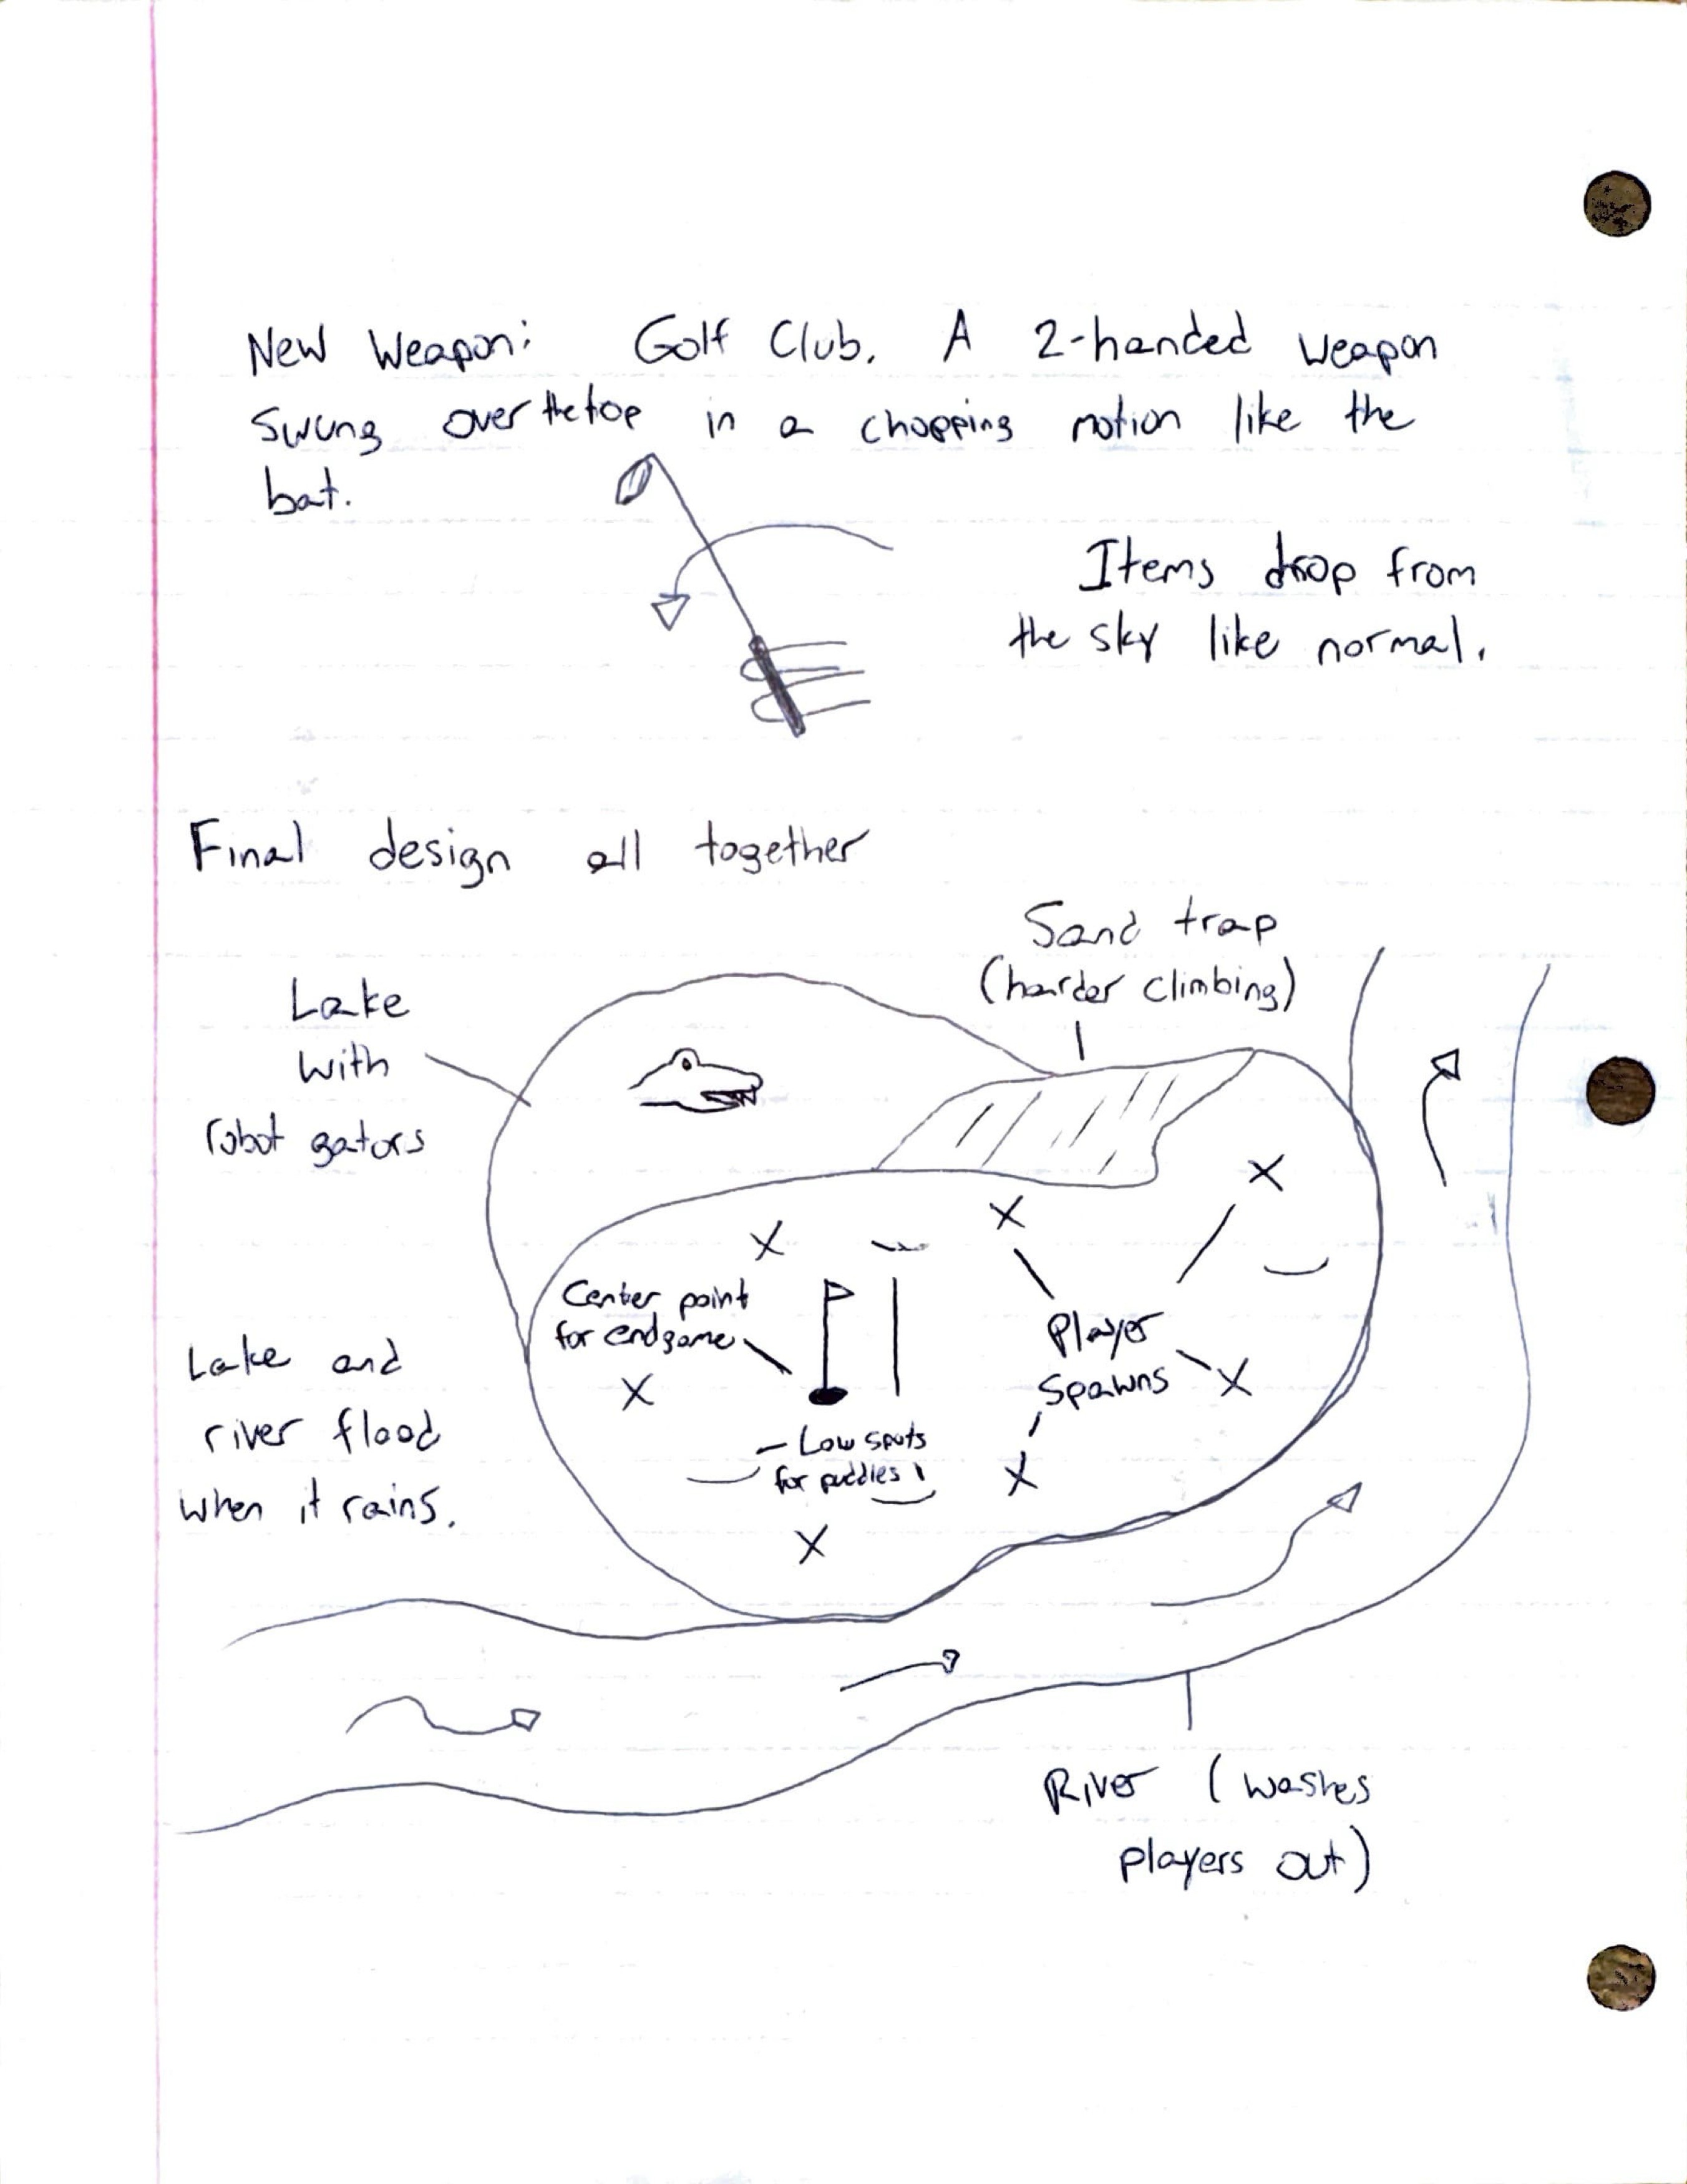 New Weapon: Golf Club. A 2-handed weapon
swung over the top in a chopping motion like the
bat.
Items drop from
the sky like normal.
Final design all together
Sand trap
(harder climbing)
Lake
with
robot gators
Center point
for endgame
Player
spawns
Lake and
river flood
when it rains.
Low spots
for puddles
River (washes
players out)